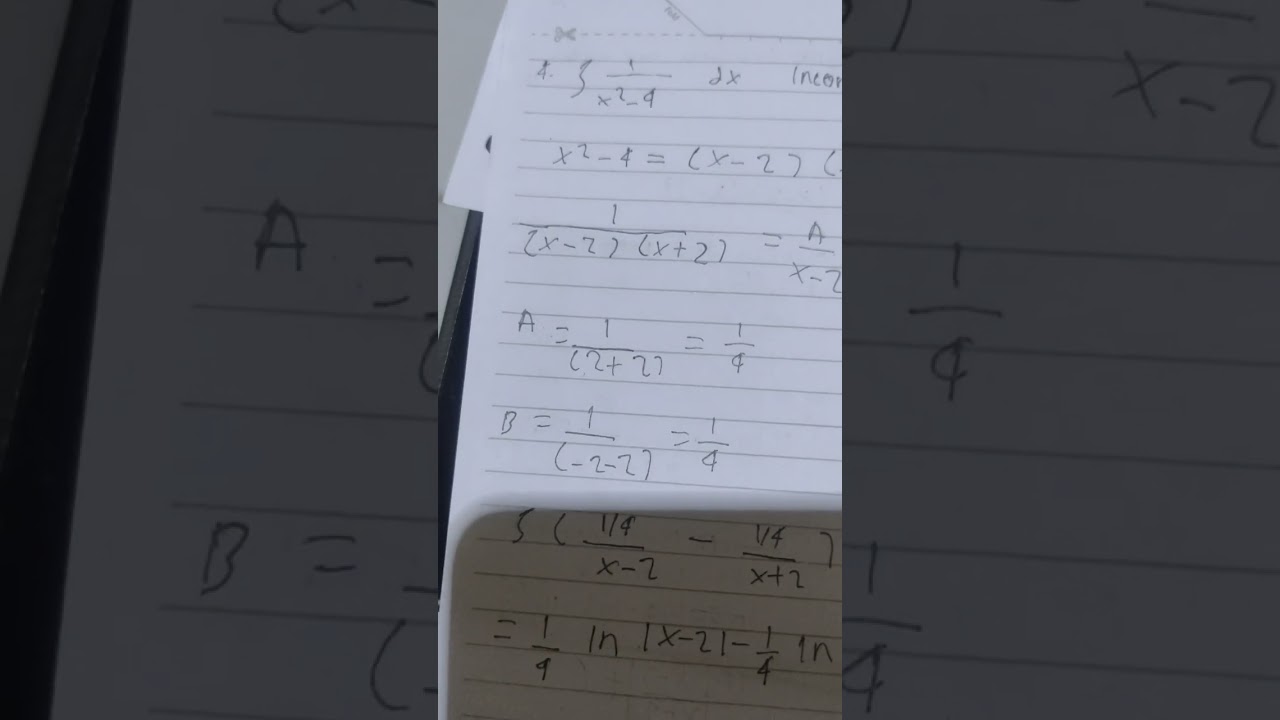 4. ∫ 1/(x²-4) dx Incor
x² - 4 = (x-2) (
1/((x-2)(x+2)) = A/(x-2
A = 1/(2+2) = 1/4
B = 1/(-2-2) = 1/4
∫ ( 1/4/(x-2) - 1/4/(x+2) )
= 1/4 ln |x-2| - 1/4 ln